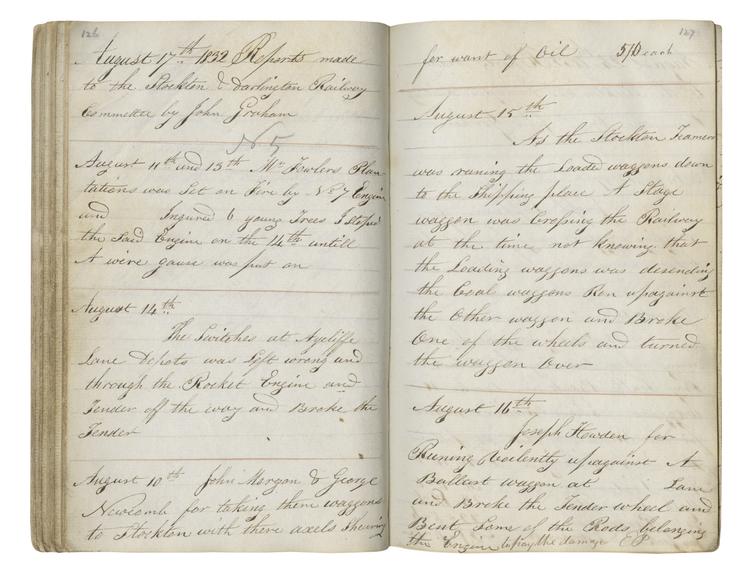 126
August 17th 1832 Reports made
to the Stockton & Darlington Railway
Committe by John Graham
No 5
August 11th and 13th Mr Fowlers Plan
tations was Set on Fire by No 7 Engine
and Ingured 6 young Trees I Stoped
the Said Engine on the 14th untill
A were gause was put on
August 14th
The Switches at Aycliffe
Lane depots was left wrong and
through the Rocket Engine and
Tender off the way and Broke the
Tender
August 10th John Morgan & George
Newcomb for taking there waggons
to Stockton with there axels Shewing
127
for want of Oil 5/0 each
August 15th
As the Stockton Teamers
was runing the Loade waggons down
to the Shipping place A Stage
waggon was Crossing the Railway
at the time not knowing that
the Loading waggons was desending
the Coals waggons Ran upagainst
the Other waggon and Broke
One of the wheels and turned
the waggon Over
August 16th
Joseph Howden for
Runing Voilently upagainst A
Ballast waggon at Lane
and Broke the Tender wheel and
Bent Some of the Rods belonging
the Engine to pay the damage EP